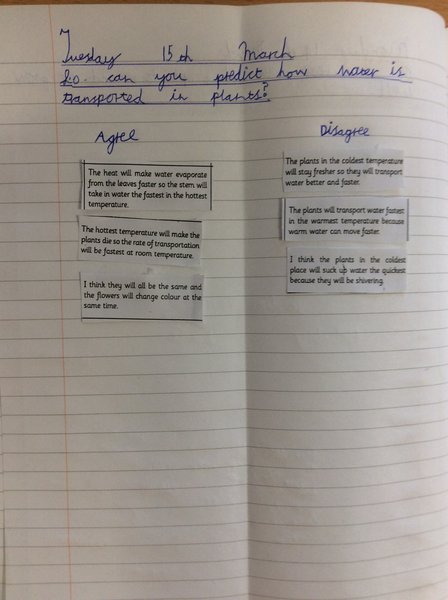 Tuesday 15th March
L.o. can you predict how water is
transported in plants?
Agree
Disagree
The heat will make water evaporate
from the leaves faster so the stem will
take in water the fastest in the hottest
temperature.
The hottest temperature will make the
plants die so the rate of transportation
will be fastest at room temperature.
I think they will all be the same and
the flowers will change colour at the
same time.
The plants in the coldest temperature
will stay fresher so they will transport
water better and faster.
The plants will transport water fastest
in the warmest temperature because
warm water can move faster.
I think the plants in the coldest
place will suck up water the quickest
because they will be shivering.